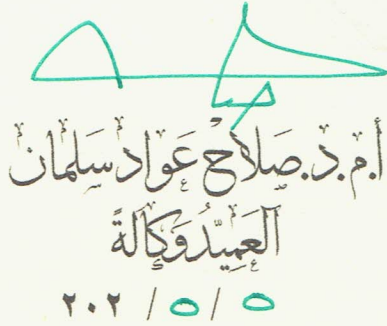 أ.م.د. صَلَاح عَوَاد سَلمَان
العَمِيدُ وَكَالَةً
٢٠٢ / ٥ / ٥